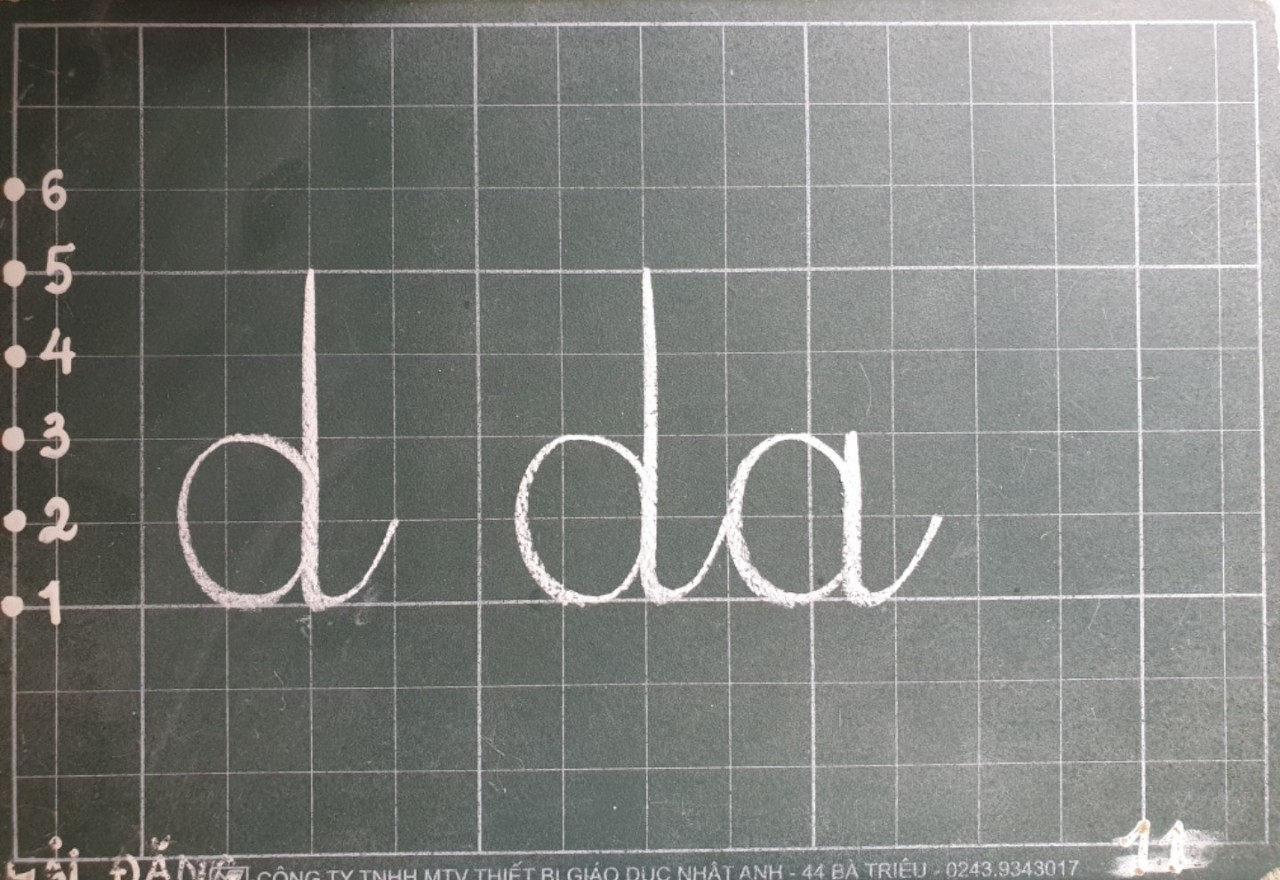 6
5
4
3
2
1
d da
HẢI ĐĂNG
CÔNG TY TNHH MTV THIẾT BỊ GIÁO DỤC NHẬT ANH - 44 BÀ TRIỆU - 0243.9343017
11